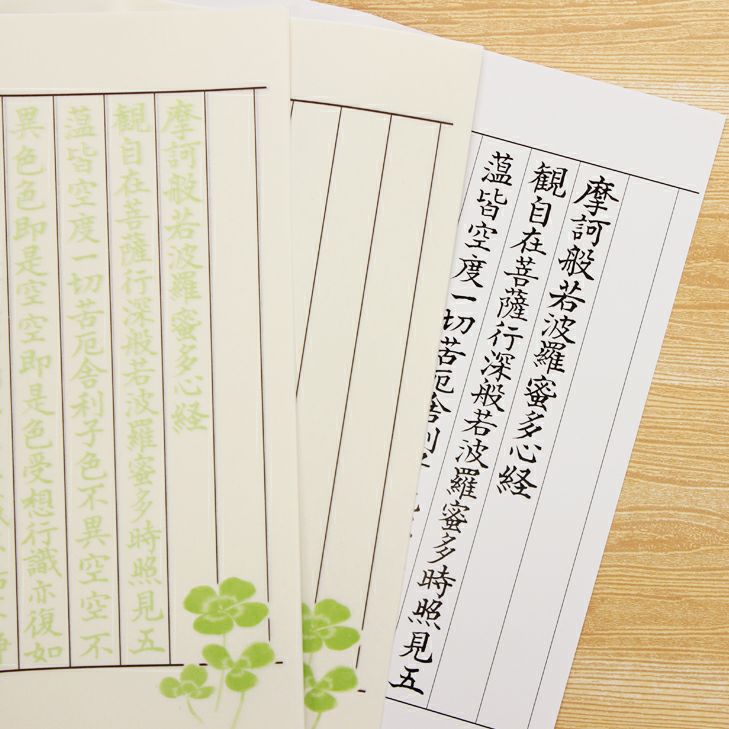 摩訶般若波羅蜜多心経
観自在菩薩行深般若波羅蜜多時照見五
薀皆空度一切苦厄舎利子色不異空空不
異色色即是空空即是色受想行識亦復如
摩訶般若波羅蜜多心経
観自在菩薩行深般若波羅蜜多時照見五
薀皆空度一切苦厄舎利